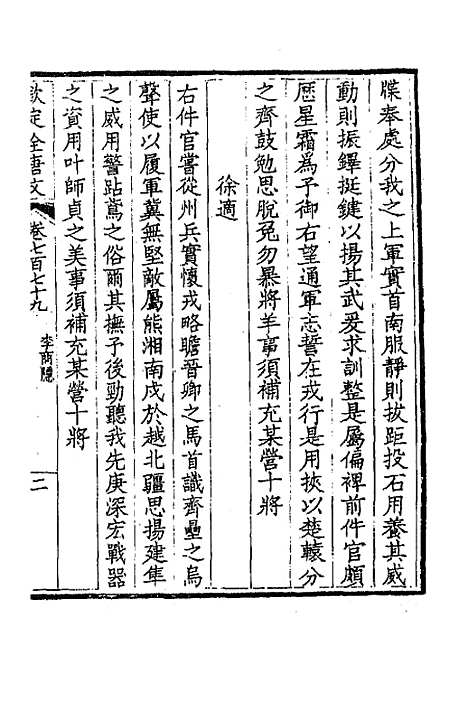 牒奉處分我之上軍實首南服靜則拔距投石用養其威
動則振鐸挺鍵以揚其武爰求訓整是屬偏裨前件官頗
歷星霜為子御右望通軍志誓在戎行是用挾以楚轅分
之齊鼓勉思脫兔勿暴將羊事須補充某營十將
徐適
右件官嘗從州兵實懷戎略瞻晉卿之馬首識齊壘之烏
聲使以履軍冀無堅敵屬熊湘南戍於越北疆思揚建隼
之威用警跕鳶之俗爾其撫予後勁聽我先庚深宏戰器
之資用叶師貞之美事須補充某營十將
欽定全唐文
卷七百七十九
李商隱
二